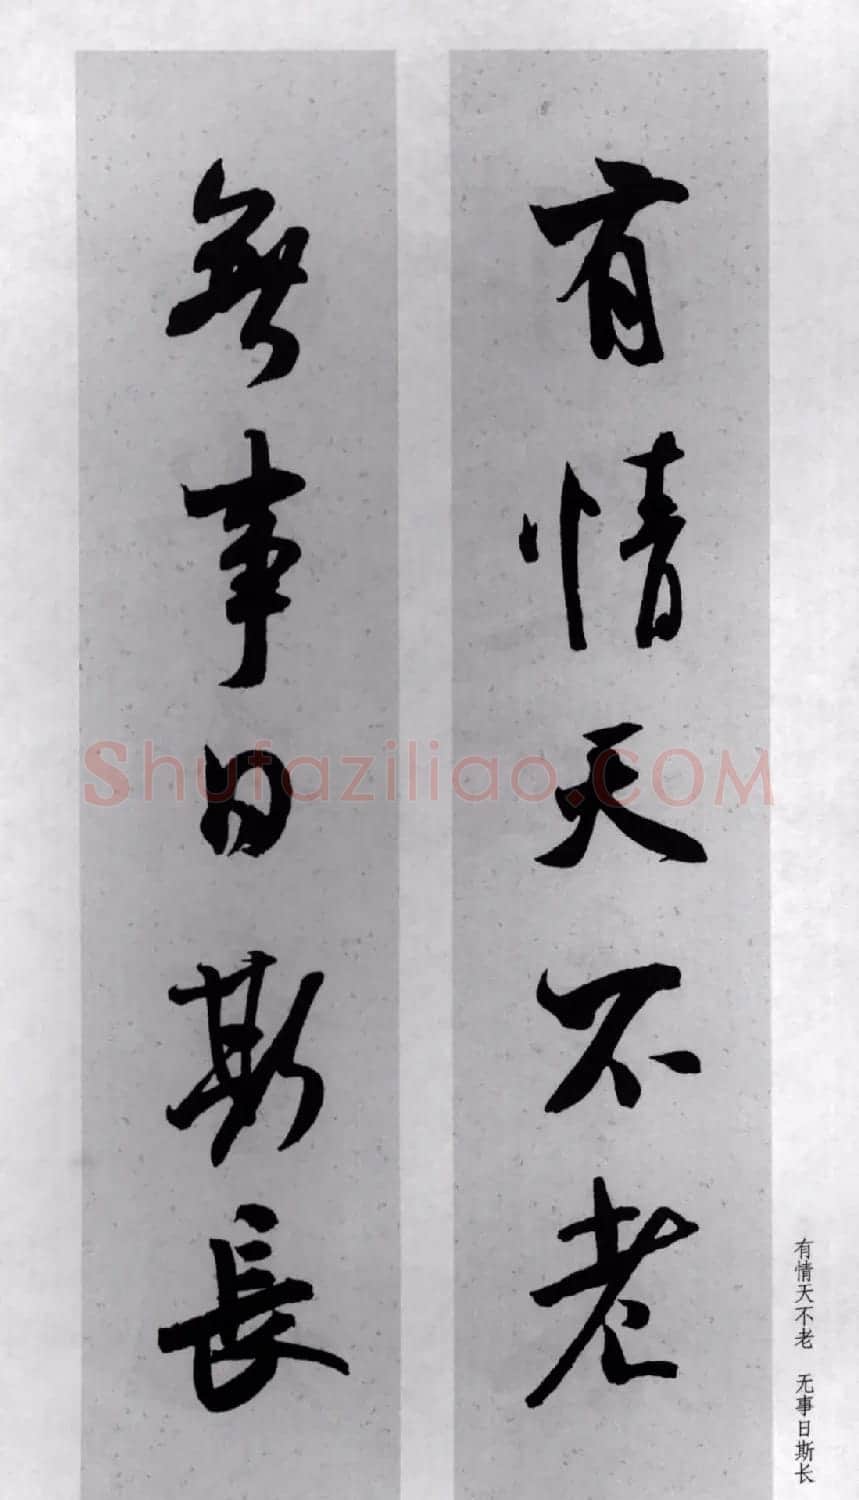 有情天不老
無事日斯長
有情天不老 无事日斯长
Shufaziliao.COM